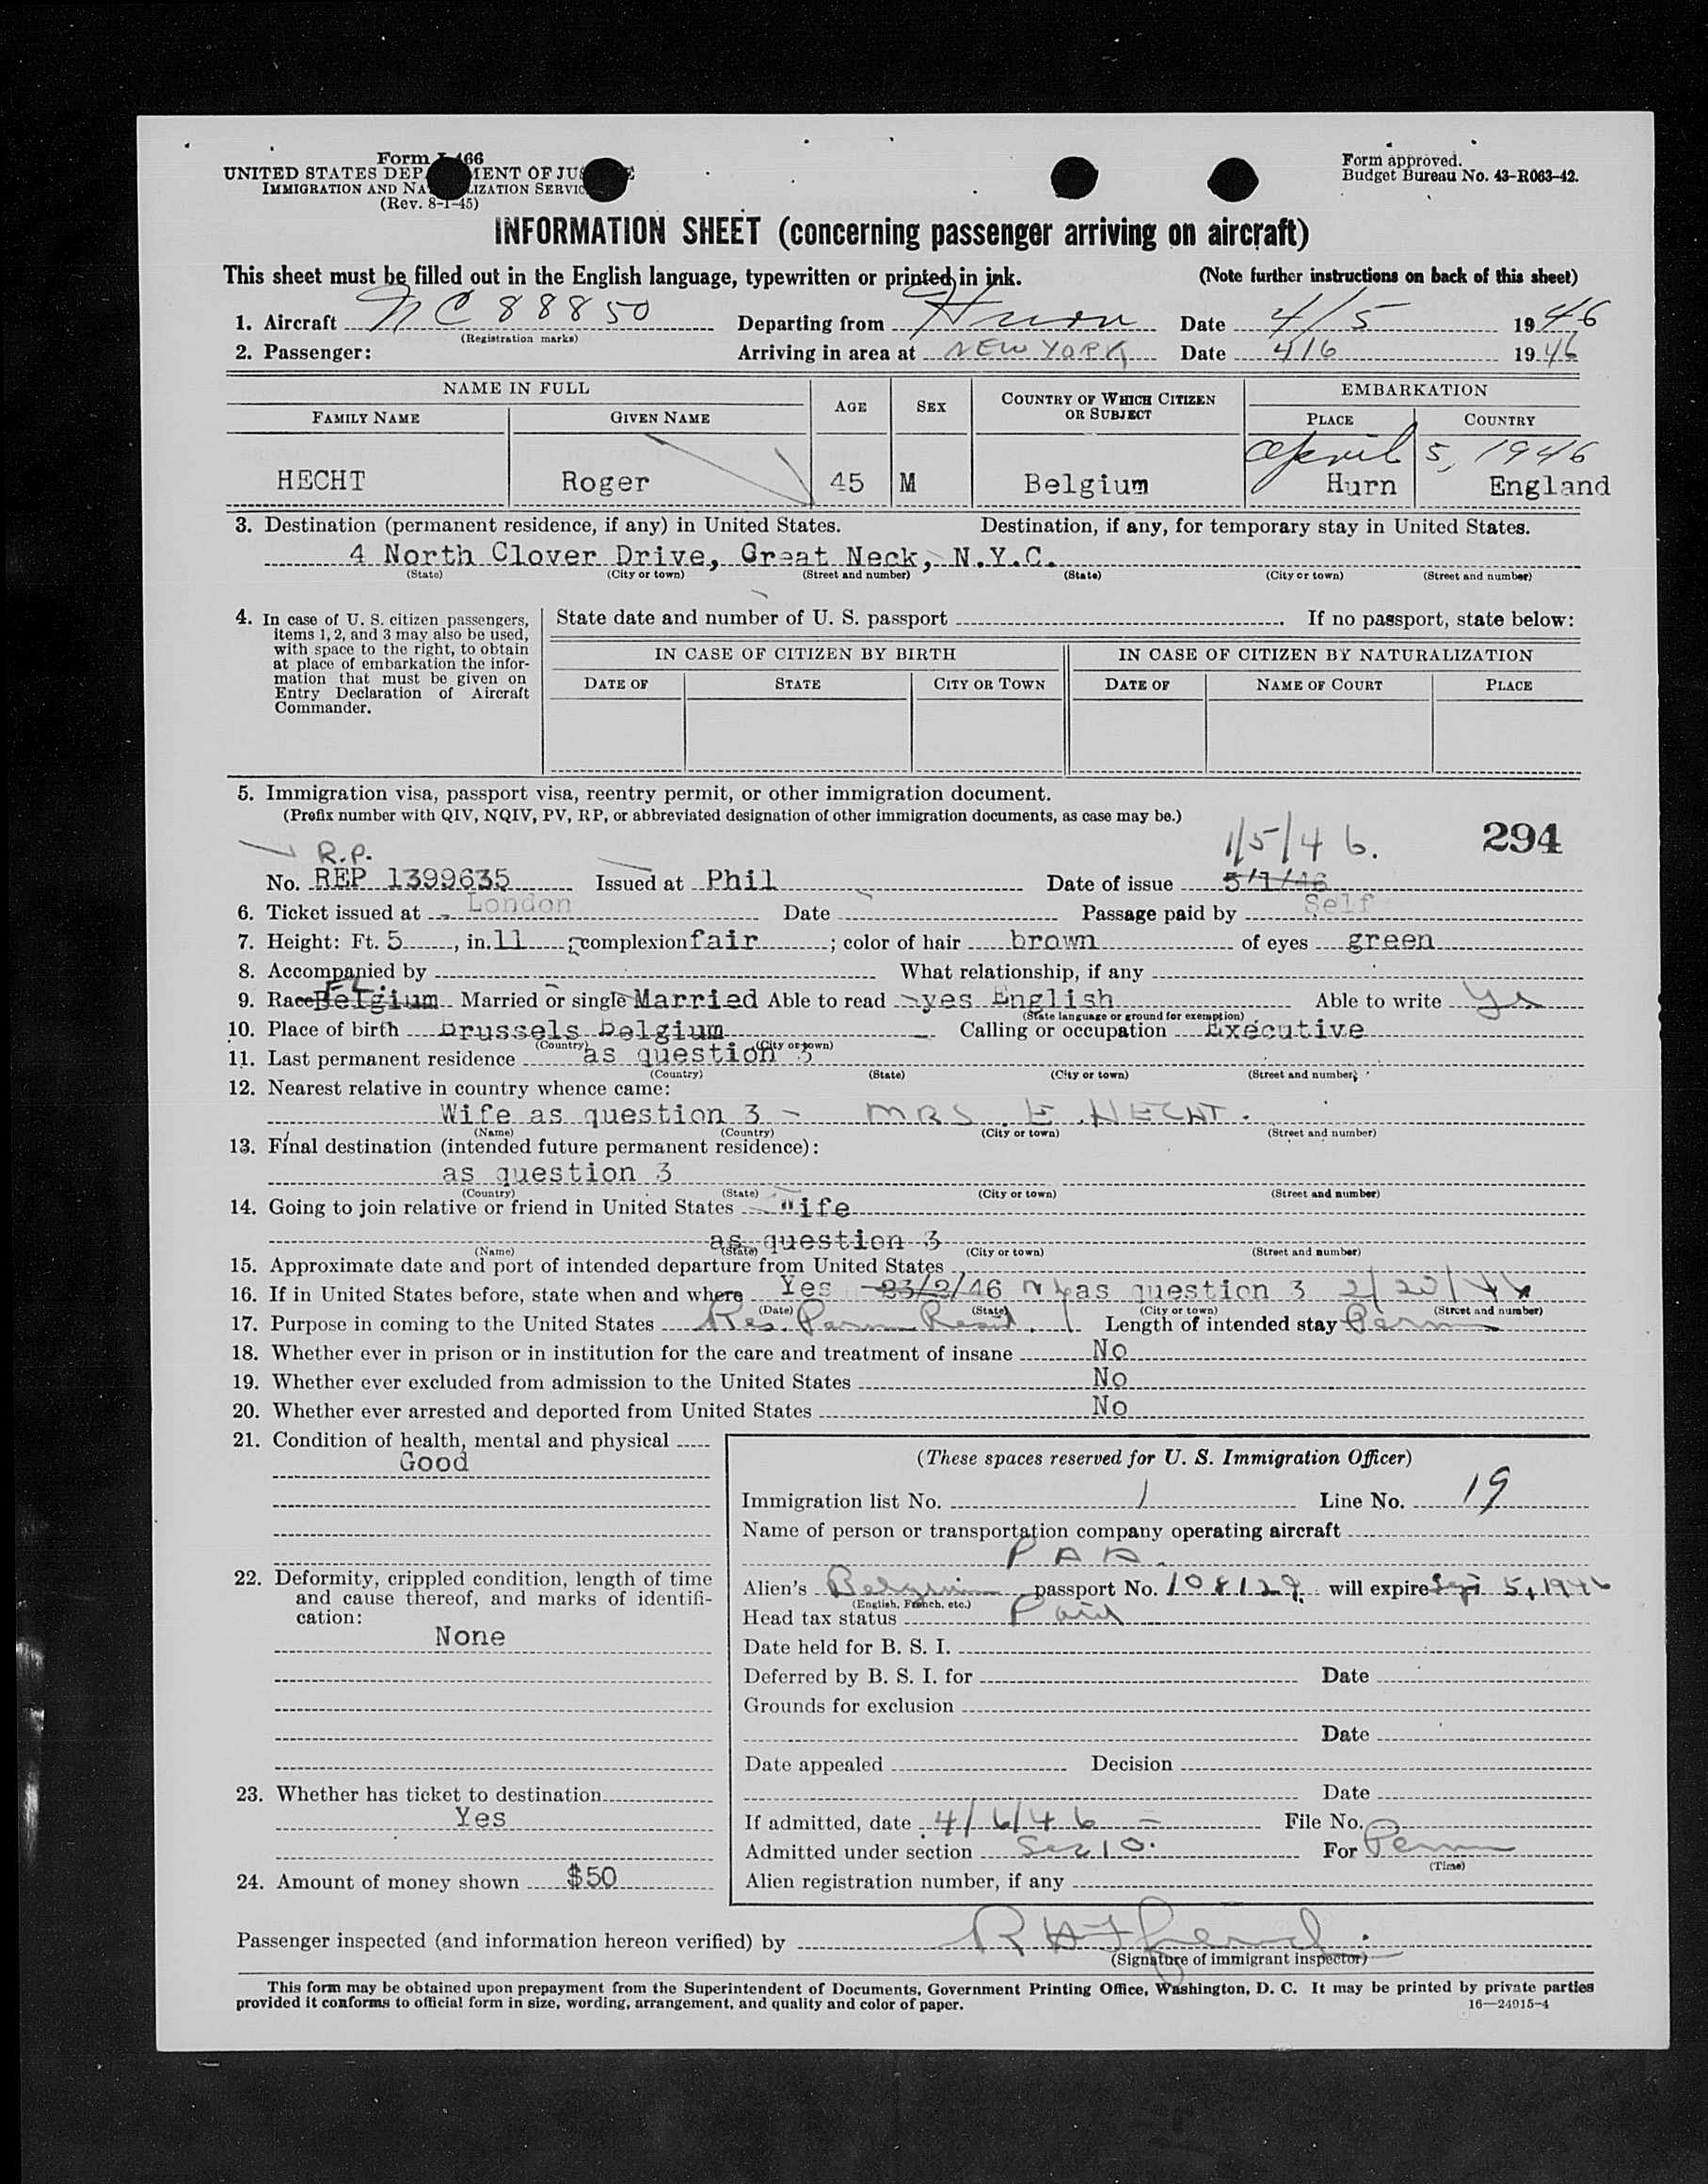 Form I-466
UNITED STATES DEPARTMENT OF JUSTICE
IMMIGRATION AND NATURALIZATION SERVICE
(Rev. 8-1-45)
Form approved.
Budget Bureau No. 43-R063-42.
INFORMATION SHEET (concerning passenger arriving on aircraft)
This sheet must be filled out in the English language, typewritten or printed in ink. (Note further instructions on back of this sheet)
1. Aircraft NC 88850 Departing from Hurn Date 4/5 1946
(Registration marks)
2. Passenger: Arriving in area at NEW YORK Date 4/6 1946
NAME IN FULL AGE SEX COUNTRY OF WHICH CITIZEN OR SUBJECT EMBARKATION
FAMILY NAME GIVEN NAME PLACE COUNTRY
April 5, 1946
HECHT Roger 45 M Belgium Hurn England
3. Destination (permanent residence, if any) in United States. Destination, if any, for temporary stay in United States.
4 North Clover Drive, Great Neck, N.Y.C.
(State) (City or town) (Street and number) (State) (City or town) (Street and number)
4. In case of U. S. citizen passengers, items 1, 2, and 3 may also be used, with space to the right, to obtain at place of embarkation the information that must be given on Entry Declaration of Aircraft Commander.
State date and number of U. S. passport If no passport, state below:
IN CASE OF CITIZEN BY BIRTH IN CASE OF CITIZEN BY NATURALIZATION
DATE OF STATE CITY OR TOWN DATE OF NAME OF COURT PLACE
5. Immigration visa, passport visa, reentry permit, or other immigration document.
(Prefix number with QIV, NQIV, PV, RP, or abbreviated designation of other immigration documents, as case may be.)
R.P. 1/5/46. 294
No. REP 1399635 Issued at Phil Date of issue 5/1/46
6. Ticket issued at London Date Passage paid by Self
7. Height: Ft. 5, in. 11; complexion fair; color of hair brown of eyes green
8. Accompanied by What relationship, if any
9. Race Belgium Married or single Married Able to read yes English Able to write Yes
(State language or ground for exemption)
10. Place of birth Brussels Belgium Calling or occupation Executive
(Country) (City or town)
11. Last permanent residence as question 3
(Country) (State) (City or town) (Street and number)
12. Nearest relative in country whence came:
Wife as question 3 - MRS. E. HECHT.
(Name) (Country) (City or town) (Street and number)
13. Final destination (intended future permanent residence):
as question 3
(Country) (State) (City or town) (Street and number)
14. Going to join relative or friend in United States Wife
as question 3
(Name) (State) (City or town) (Street and number)
15. Approximate date and port of intended departure from United States
16. If in United States before, state when and where Yes 23/2/46 NY as question 3
(Date) (State) (City or town) (Street and number)
17. Purpose in coming to the United States Res. Perm Resid. Length of intended stay Perm
18. Whether ever in prison or in institution for the care and treatment of insane No
19. Whether ever excluded from admission to the United States No
20. Whether ever arrested and deported from United States No
21. Condition of health, mental and physical
Good
22. Deformity, crippled condition, length of time and cause thereof, and marks of identification:
None
23. Whether has ticket to destination
Yes
24. Amount of money shown $50
(These spaces reserved for U. S. Immigration Officer)
Immigration list No. 1 Line No. 19
Name of person or transportation company operating aircraft
PAA.
Alien's Belgium passport No. 108129. will expire Sept 5, 1946
(English, French, etc.)
Head tax status Paid
Date held for B. S. I.
Deferred by B. S. I. for Date
Grounds for exclusion
Date
Date appealed Decision
Date
If admitted, date 4/6/46 File No.
Admitted under section Sec 10. For Perm
(Time)
Alien registration number, if any
Passenger inspected (and information hereon verified) by
(Signature of immigrant inspector)
This form may be obtained upon prepayment from the Superintendent of Documents, Government Printing Office, Washington, D. C. It may be printed by private parties
provided it conforms to official form in size, wording, arrangement, and quality and color of paper. 16—24015-4